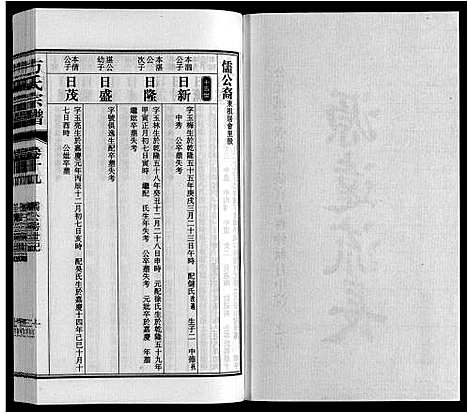 儒公裔
十三世
本涵公子
日新
字玉梅生於乾隆五十五年庚戌三月二十三日午時 配儲氏 生子二 中德
中秀 公卒葬失考
本湛次子
日隆
字玉林生於乾隆五十八年癸丑十二月二十八日申時 元配徐氏生於乾隆五十九年
甲寅正月初七日寅時 繼配 氏生年失考 元妣卒於嘉慶 年葬
公卒葬失考
湛公幼子
日盛
字號俱逸生配卒葬失考
本倩公子
日茂
字玉亮生於嘉慶元年丙辰十二月初七日亥時 配吳氏生於嘉慶十四年己巳十月十
七日酉時 公妣卒葬
方氏宗譜
卷十九
儒公房世紀